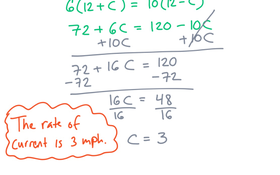 6(12+C) = 10(12-C)
72 + 6C = 120 - 10C
+10C +10C
72 + 16C = 120
-72 -72
16C = 48
16 16
The rate of
current is 3 mph.
C = 3